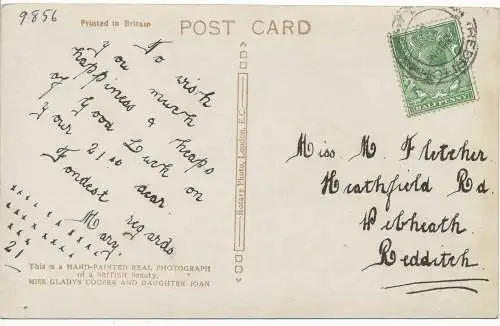 9856
Printed in Britain
POST CARD
To wish
you much
happiness & heaps
of Good Luck on
your 21st
dear.
Fondest regards
Mary.
x x x x x
x x x x x
x x x x x
21
This is a HAND-PAINTED REAL PHOTOGRAPH
of a BRITISH Beauty.
MISS GLADYS COOPER AND DAUGHTER JOAN
Rotary Photo, London, E.C.
REDDITCH
HALFPENNY
Miss M. Fletcher.
Heathfield Rd.
Webheath.
Redditch.